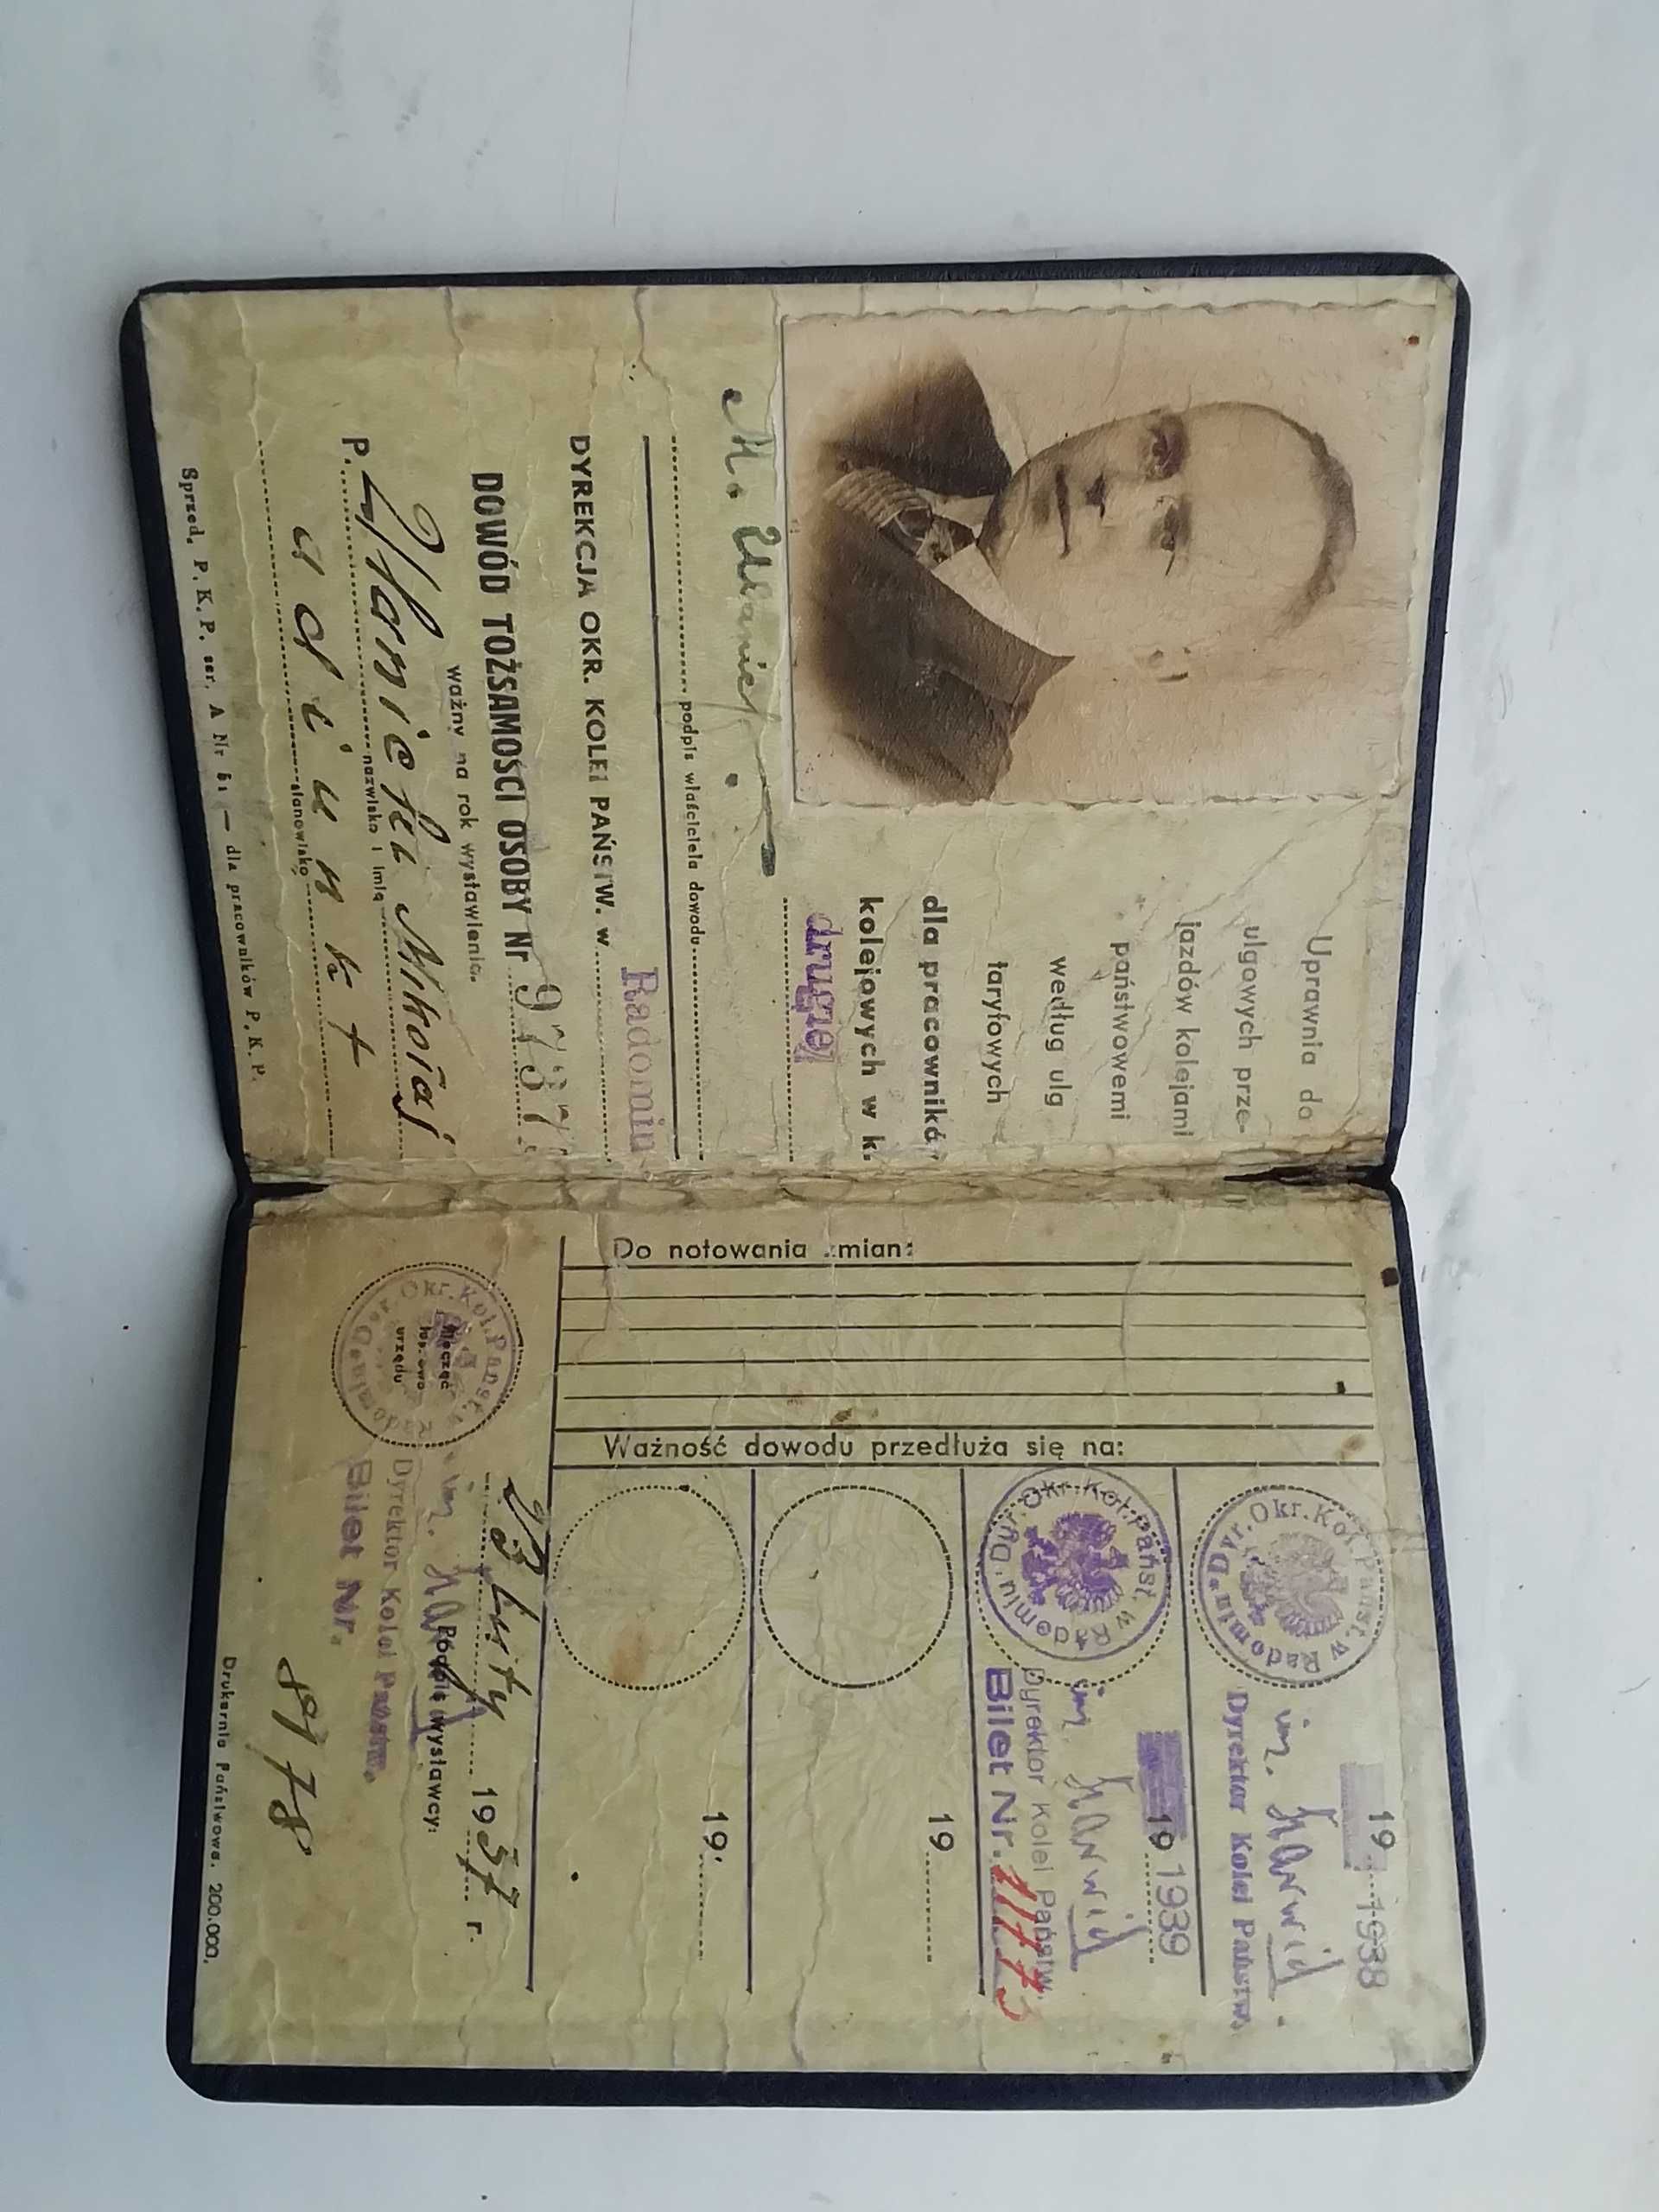 Uprawnia do
ulgowych prze-
jazdów kolejami
państwowemi
według ulg
taryfowych
dla pracowników
kolejowych w k.
drugiej
podpis właściciela dowodu
DYREKCJA OKR. KOLEI PAŃSTW. w Radomiu
DOWÓD TOŻSAMOŚCI OSOBY Nr 9737
ważny na rok wystawienia.
P. Mikołaj
nazwisko i imię
adiunkt
stanowisko
Sprzed. P. K. P. ser. A Nr 51 — dla pracowników P. K. P.
Do notowania zmian:
Ważność dowodu przedłuża się na:
19 1938
Dyr. Okr. Kol. Państ. w Radomiu
Dyrektor Kolei Państw.
19 1939
Dyr. Okr. Kol. Państ. w Radomiu
Dyrektor Kolei Państw.
Bilet Nr.
19
19
3 luty 1937 r.
Podpis wystawcy:
pieczęć
urzędu
Dyr. Okr. Kol. Państ. w Radomiu
Dyrektor Kolei Państw.
Bilet Nr.
8978
Drukarnia Państwowa. 200.000.